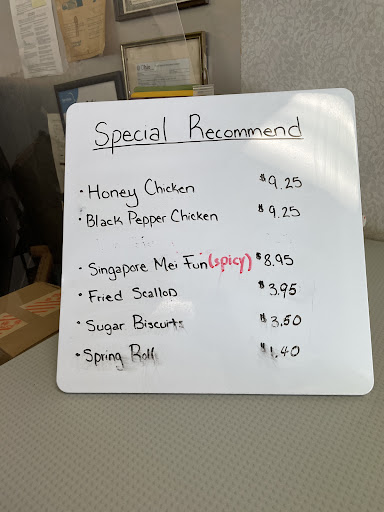 Special Recommend
• Honey Chicken $9.25
• Black Pepper Chicken $9.25
• Singapore Mei Fun (spicy) $8.95
• Fried Scallop $3.95
• Sugar Biscuits $3.50
• Spring Roll $1.40